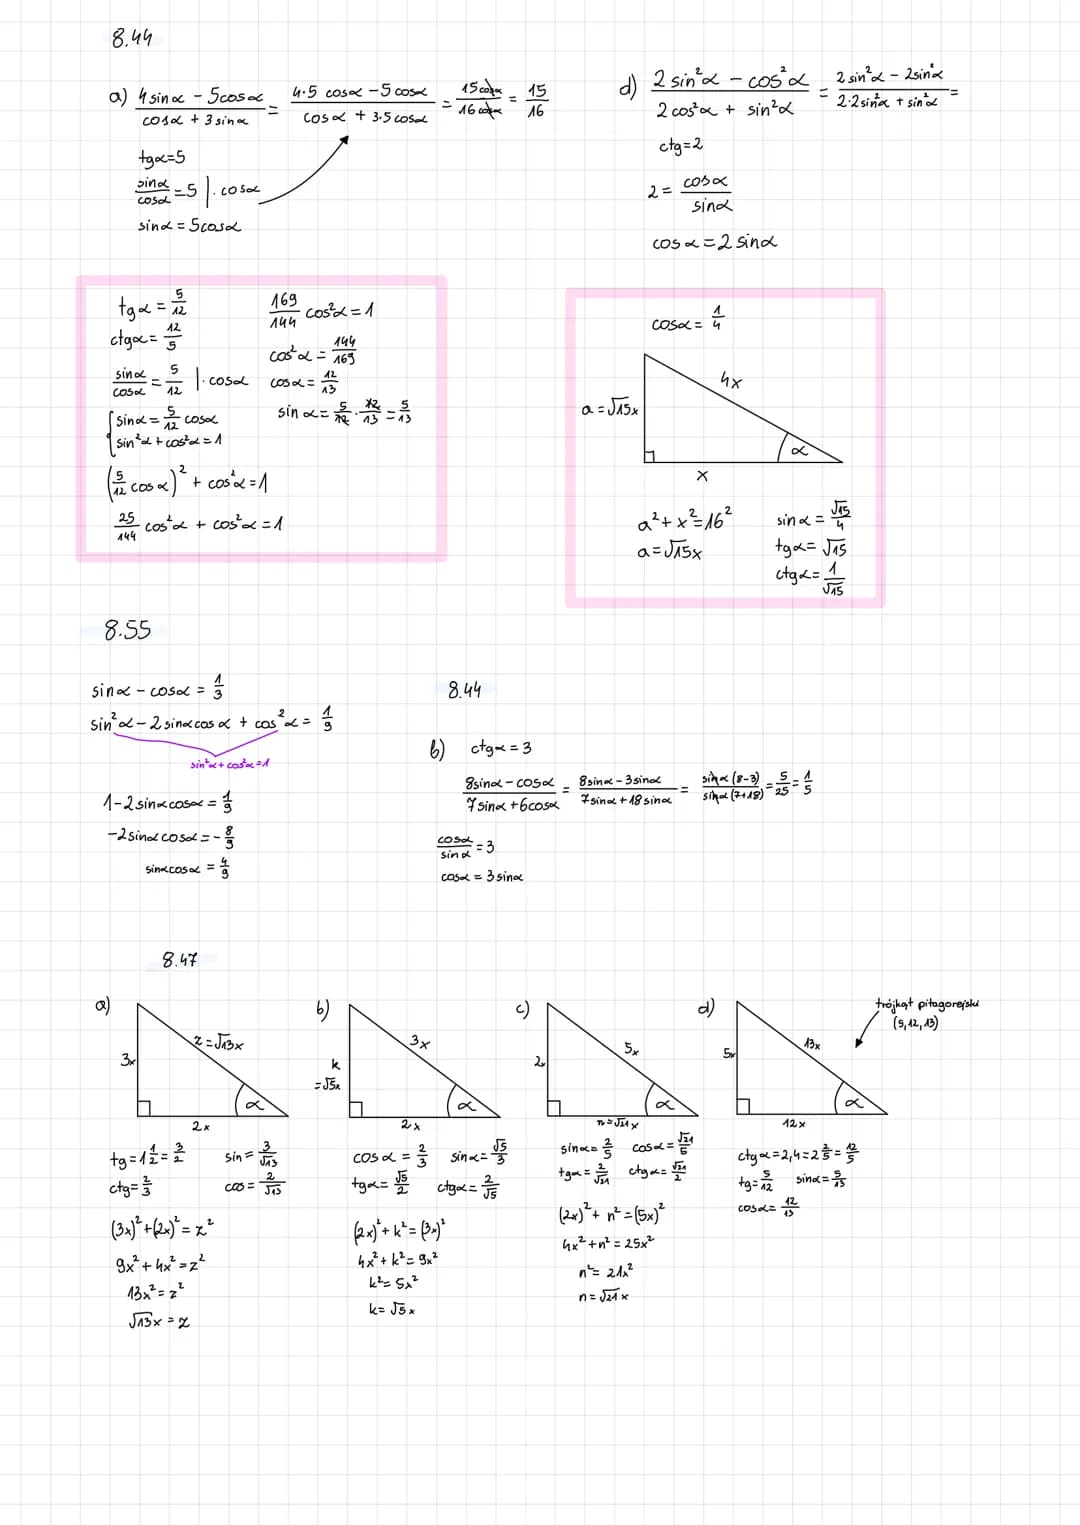 8.44
a) (4sinα - 5cosα)/(cosα + 3sinα) = (4·5cosα - 5cosα)/(cosα + 3·5cosα) = 15cosα/16cosα = 15/16
tgα=5
sinα/cosα = 5 |·cosα
sinα = 5cosα
d) (2sin²α - cos²α)/(2cos²α + sin²α) = (2sin²α - 2sin²α)/(2·2sin²α + sin²α) =
ctg=2
2 = cosα/sinα
cosα = 2sinα
tgα = 5/12
ctgα = 12/5
sinα/cosα = 5/12 |·cosα
{ sinα = 5/12 cosα
sin²α + cos²α = 1
(5/12 cosα)² + cos²α = 1
25/144 cos²α + cos²α = 1
169/144 cos²α = 1
cos²α = 144/169
cosα = 12/13
sinα = 5/12 · 12/13 = 5/13
cosα = 1/4
4x
a = √15x
α
x
a² + x² = 16²
a = √15x
sinα = √15/4
tgα = √15
ctgα = 1/√15
8.55
sinα - cosα = 1/3
sin²α - 2sinαcosα + cos²α = 1/9
sin²α + cos²α = 1
1 - 2sinαcosα = 1/9
-2sinαcosα = -8/9
sinαcosα = 4/9
8.44
b) ctgα = 3
(8sinα - cosα)/(7sinα + 6cosα) = (8sinα - 3sinα)/(7sinα + 18sinα) = sinα(8-3)/sinα(7+18) = 5/25 = 1/5
cosα/sinα = 3
cosα = 3sinα
8.47
a)
3x
z = √13x
α
2x
tg = 1 1/2 = 3/2
ctg = 2/3
sin = 3/√13
cos = 2/√13
(3x)² + (2x)² = z²
9x² + 4x² = z²
13x² = z²
√13x = z
b)
3x
k
= √5x
α
2x
cosα = 2/3
sinα = √5/3
tgα = √5/2
ctgα = 2/√5
(2x)² + k² = (3x)²
4x² + k² = 9x²
k² = 5x²
k = √5x
c)
5x
2x
α
n = √21x
sinα = 2/5
cosα = √21/5
tgα = 2/√21
ctgα = √21/2
(2x)² + n² = (5x)²
4x² + n² = 25x²
n² = 21x²
n = √21x
d)
trójkąt pitagorejski
(5,12,13)
13x
5x
α
12x
ctgα = 2,4 = 2 2/5 = 12/5
tg = 5/12
sinα = 5/13
cosα = 12/13